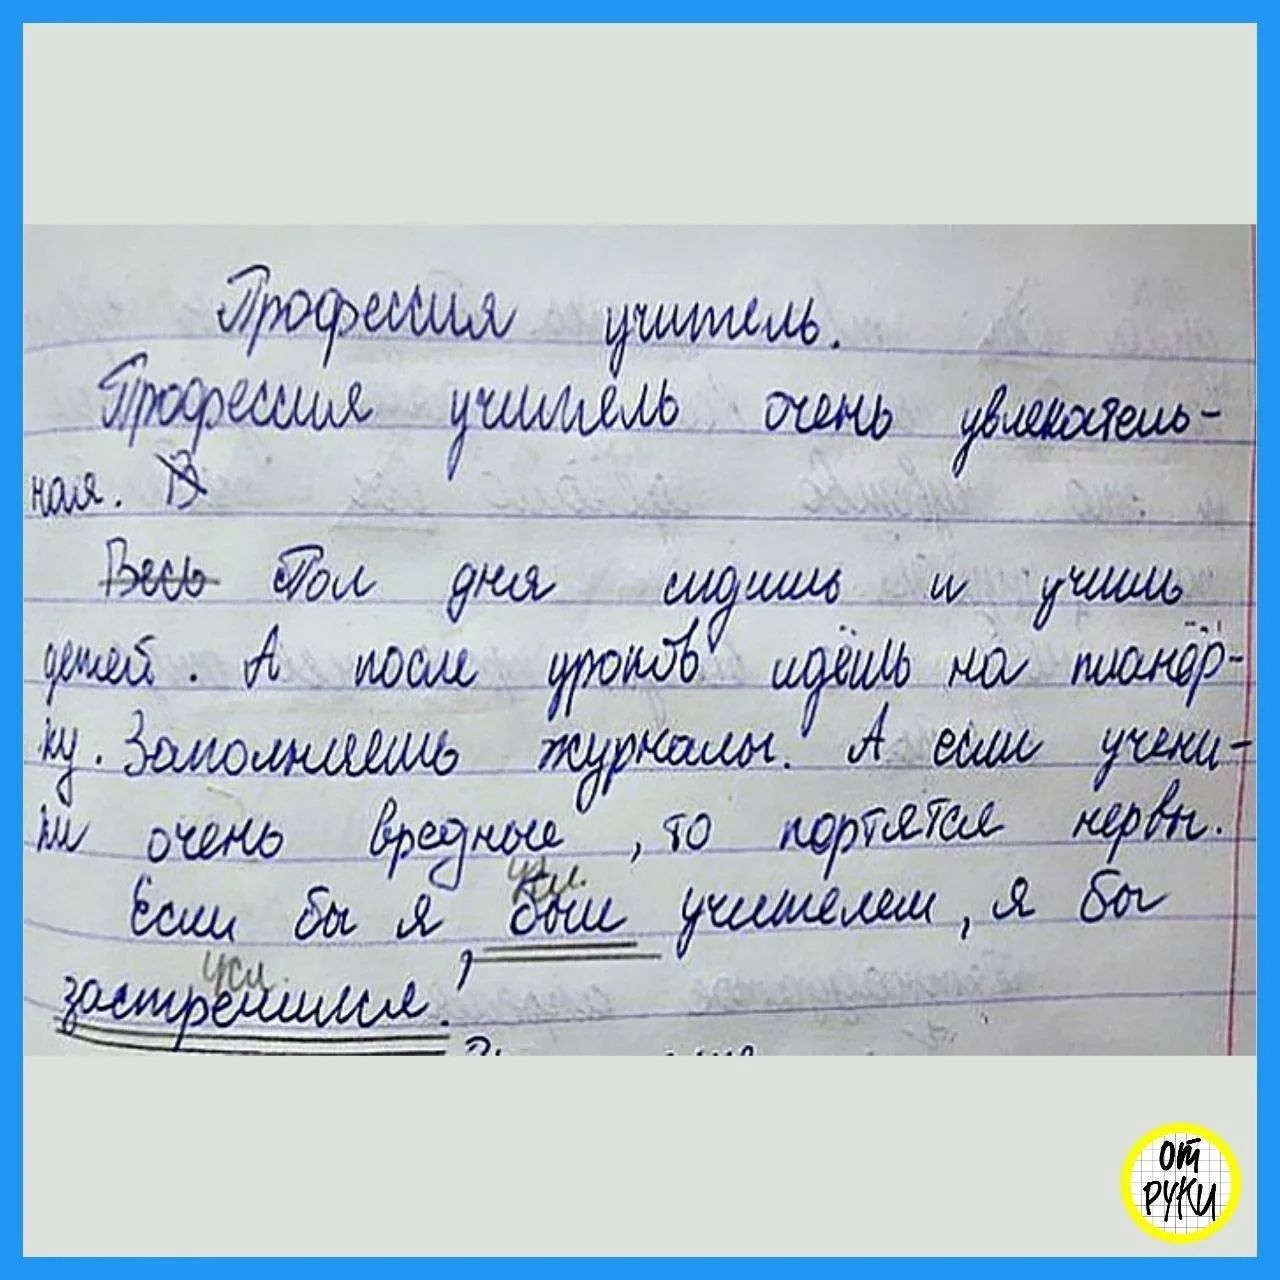 Профессия учитель.
Профессия учитель очень увлекатель-
ная. В
Весь Пол дня сидишь и учишь
детей. А после уроков идёшь на планёр-
ку. Заполняешь журналы. А если учени-
ки очень вредные, то портятся нервы.
усл.
Если бы я был учителем, я бы
усл.
застрелился!
ОТ
РУКИ